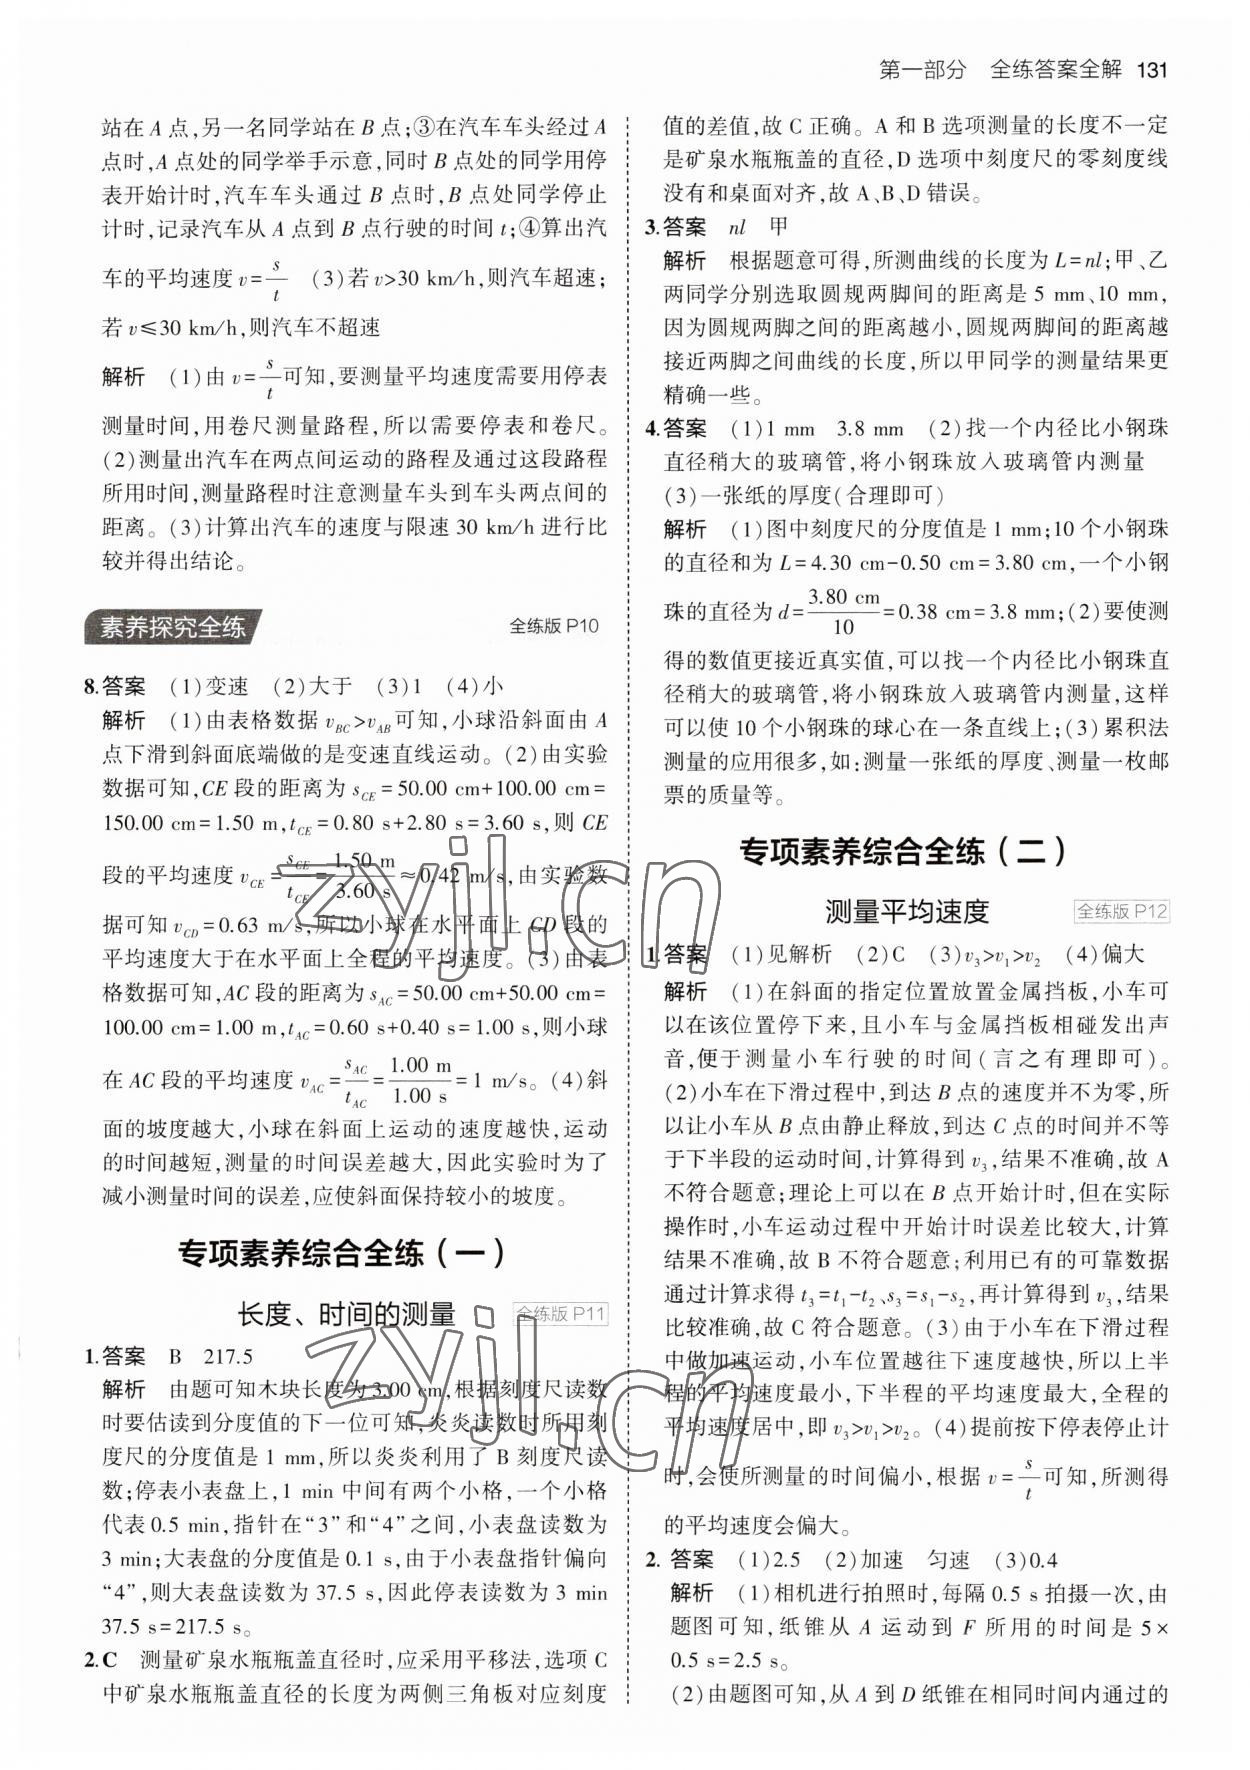 第一部分 全练答案全解 131
站在 A 点,另一名同学站在 B 点;③在汽车车头经过 A
点时,A 点处的同学举手示意,同时 B 点处的同学用停
表开始计时,汽车车头通过 B 点时,B 点处同学停止
计时,记录汽车从 A 点到 B 点行驶的时间 t;④算出汽
车的平均速度 v=s/t (3)若 v>30 km/h,则汽车超速;
若 v≤30 km/h,则汽车不超速
解析 (1)由 v=s/t 可知,要测量平均速度需要用停表
测量时间,用卷尺测量路程,所以需要停表和卷尺。
(2)测量出汽车在两点间运动的路程及通过这段路程
所用时间,测量路程时注意测量车头到车头两点间的
距离。(3)计算出汽车的速度与限速 30 km/h 进行比
较并得出结论。
素养探究全练 全练版 P10
8.答案 (1)变速 (2)大于 (3)1 (4)小
解析 (1)由表格数据 v_BC>v_AB 可知,小球沿斜面由 A
点下滑到斜面底端做的是变速直线运动。(2)由实验
数据可知,CE 段的距离为 s_CE=50.00 cm+100.00 cm=
150.00 cm=1.50 m,t_CE=0.80 s+2.80 s=3.60 s,则 CE
段的平均速度 v_CE=s_CE/t_CE=1.50 m/3.60 s≈0.42 m/s,由实验数
据可知 v_CD=0.63 m/s,所以小球在水平面上 CD 段的
平均速度大于在水平面上全程的平均速度。(3)由表
格数据可知,AC 段的距离为 s_AC=50.00 cm+50.00 cm=
100.00 cm=1.00 m,t_AC=0.60 s+0.40 s=1.00 s,则小球
在 AC 段的平均速度 v_AC=s_AC/t_AC=1.00 m/1.00 s=1 m/s。(4)斜
面的坡度越大,小球在斜面上运动的速度越快,运动
的时间越短,测量的时间误差越大,因此实验时为了
减小测量时间的误差,应使斜面保持较小的坡度。
专项素养综合全练(一)
长度、时间的测量 全练版 P11
1.答案 B 217.5
解析 由题可知木块长度为 3.00 cm,根据刻度尺读数
时要估读到分度值的下一位可知,炎炎读数时所用刻
度尺的分度值是 1 mm,所以炎炎利用了 B 刻度尺读
数;停表小表盘上,1 min 中间有两个小格,一个小格
代表 0.5 min,指针在“3”和“4”之间,小表盘读数为
3 min;大表盘的分度值是 0.1 s,由于小表盘指针偏向
“4”,则大表盘读数为 37.5 s,因此停表读数为 3 min
37.5 s=217.5 s。
2.C 测量矿泉水瓶瓶盖直径时,应采用平移法,选项 C
中矿泉水瓶瓶盖直径的长度为两侧三角板对应刻度
值的差值,故 C 正确。A 和 B 选项测量的长度不一定
是矿泉水瓶瓶盖的直径,D 选项中刻度尺的零刻度线
没有和桌面对齐,故 A、B、D 错误。
3.答案 nl 甲
解析 根据题意可得,所测曲线的长度为 L=nl;甲、乙
两同学分别选取圆规两脚间的距离是 5 mm、10 mm,
因为圆规两脚之间的距离越小,圆规两脚间的距离越
接近两脚之间曲线的长度,所以甲同学的测量结果更
精确一些。
4.答案 (1)1 mm 3.8 mm (2)找一个内径比小钢珠
直径稍大的玻璃管,将小钢珠放入玻璃管内测量
(3)一张纸的厚度(合理即可)
解析 (1)图中刻度尺的分度值是 1 mm;10 个小钢珠
的直径和为 L=4.30 cm-0.50 cm=3.80 cm,一个小钢
珠的直径为 d=3.80 cm/10=0.38 cm=3.8 mm;(2)要使测
得的数值更接近真实值,可以找一个内径比小钢珠直
径稍大的玻璃管,将小钢珠放入玻璃管内测量,这样
可以使 10 个小钢珠的球心在一条直线上;(3)累积法
测量的应用很多,如:测量一张纸的厚度、测量一枚邮
票的质量等。
专项素养综合全练(二)
测量平均速度 全练版 P12
1.答案 (1)见解析 (2)C (3)v₃>v₁>v₂ (4)偏大
解析 (1)在斜面的指定位置放置金属挡板,小车可
以在该位置停下来,且小车与金属挡板相碰发出声
音,便于测量小车行驶的时间(言之有理即可)。
(2)小车在下滑过程中,到达 B 点的速度并不为零,所
以让小车从 B 点由静止释放,到达 C 点的时间并不等
于下半段的运动时间,计算得到 v₃,结果不准确,故 A
不符合题意;理论上可以在 B 点开始计时,但在实际
操作时,小车运动过程中开始计时误差比较大,计算
结果不准确,故 B 不符合题意;利用已有的可靠数据
通过计算求得 t₃=t₁-t₂、s₃=s₁-s₂,再计算得到 v₃,结果
比较准确,故 C 符合题意。(3)由于小车在下滑过程
中做加速运动,小车位置越往下速度越快,所以上半
程的平均速度最小,下半程的平均速度最大,全程的
平均速度居中,即 v₃>v₁>v₂。(4)提前按下停表停止计
时,会使所测量的时间偏小,根据 v=s/t 可知,所测得
的平均速度会偏大。
2. 答案 (1)2.5 (2)加速 匀速 (3)0.4
解析 (1)相机进行拍照时,每隔 0.5 s 拍摄一次,由
题图可知,纸锥从 A 运动到 F 所用的时间是 5×
0.5 s=2.5 s。
(2)由题图可知,从 A 到 D 纸锥在相同时间内通过的
zyjl.cn
zyjl.cn